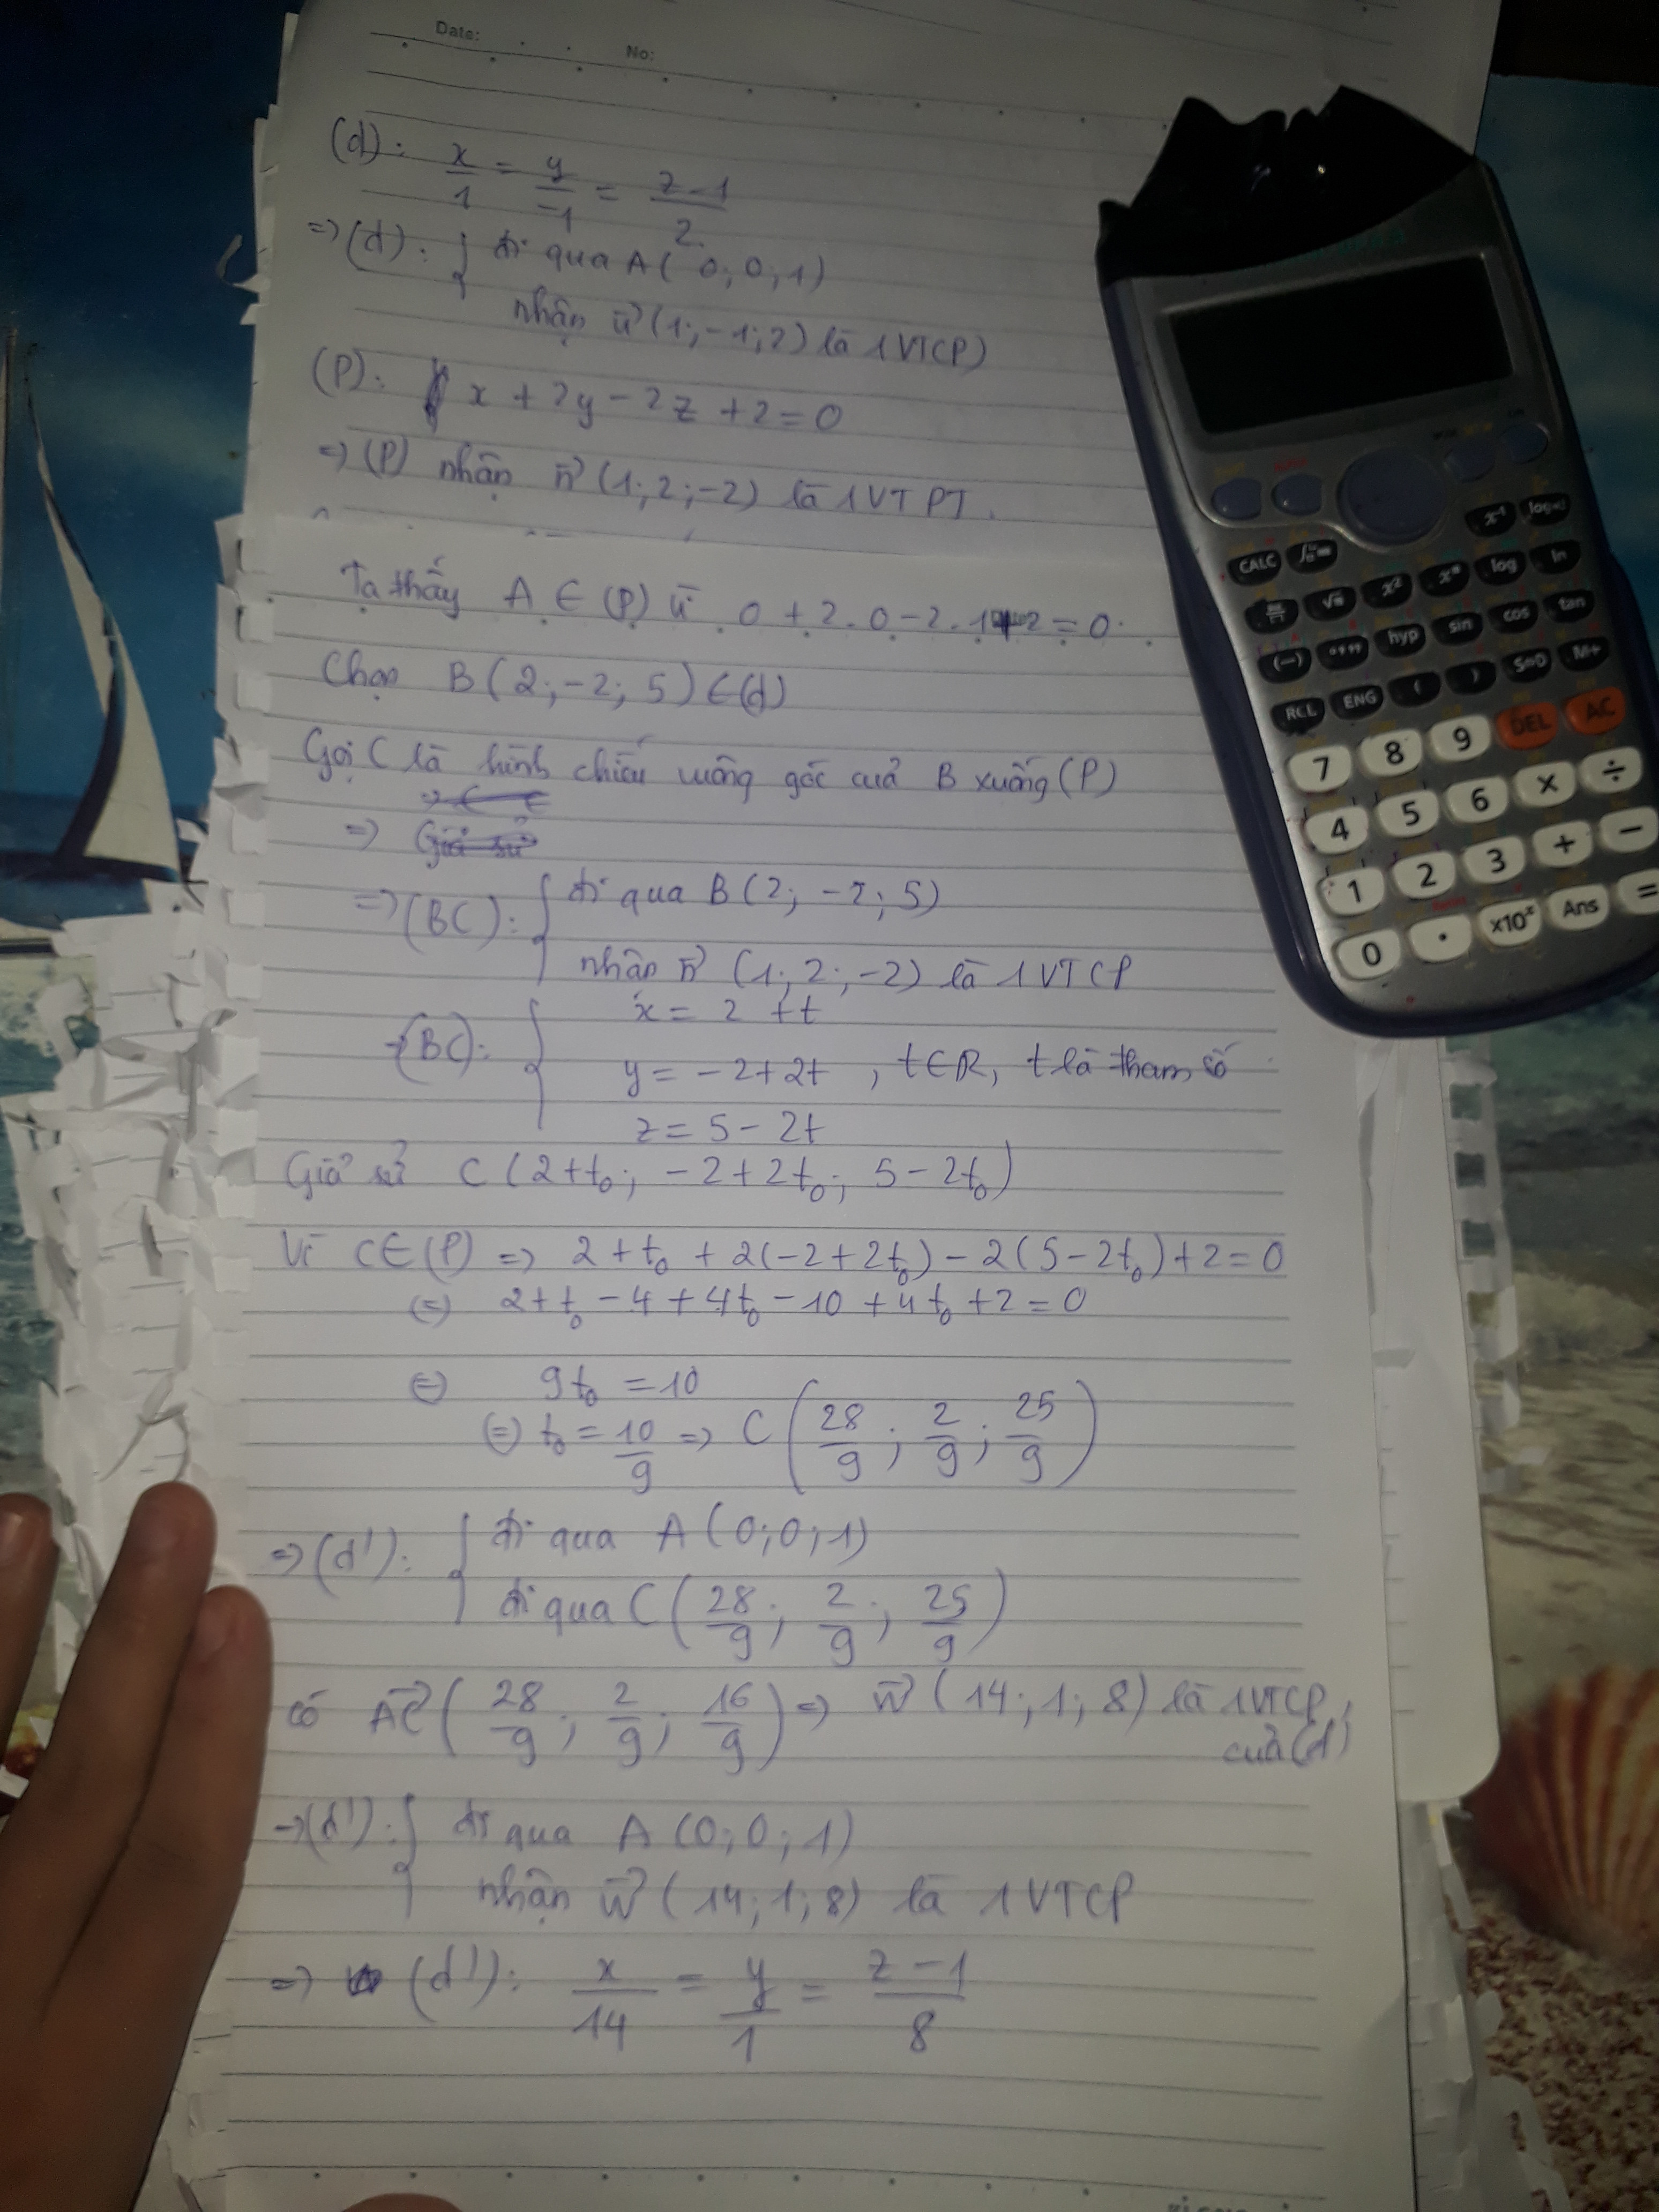 Date: No:
(d): x/1 = y/-1 = z-1/2
=> (d): { đi qua A(0;0;1)
nhận u⃗(1;-1;2) là 1VTCP)
(P): x + 2y - 2z + 2 = 0
=> (P) nhận n⃗(1;2;-2) là 1VTPT.
Ta thấy A ∈ (P) vì 0 + 2.0 - 2.1 + 2 = 0.
Chọn B(2;-2;5) ∈ (d)
Gọi C là hình chiếu vuông góc cuả B xuống (P)
=>
=> Giả sử
=> (BC): { đi qua B(2;-2;5)
nhận n⃗ (1;2;-2) là 1VTCP
→(BC): { x = 2 + t
y = -2+2t , t∈R, t là tham số
z = 5 - 2t
Giả sử C(2+t₀; -2+2t₀; 5-2t₀)
Vì C∈(P) => 2+t₀ + 2(-2+2t₀) - 2(5-2t₀)+2=0
(=) 2+t₀ - 4 + 4t₀ - 10 + 4t₀ + 2 = 0
(=) 9t₀ = 10
(=) t₀ = 10/9 => C(28/9; 2/9; 25/9)
=> (d'): { đi qua A(0;0;1)
đi qua C(28/9; 2/9; 25/9)
có AC⃗(28/9; 2/9; 16/9) => w⃗(14;1;8) là 1VTCP
cuả (d')
→(d'): { đi qua A(0;0;1)
nhận w⃗(14;1;8) là 1VTCP
=> (d'): x/14 = y/1 = z-1/8
CALC
x⁻¹
√
x²
log
ln
(−)
hyp
sin
cos
tan
RCL
ENG
(
)
S⇔D
M+
7 8 9 DEL AC
4 5 6 × ÷
1 2 3 + −
0 . ×10ˣ Ans =